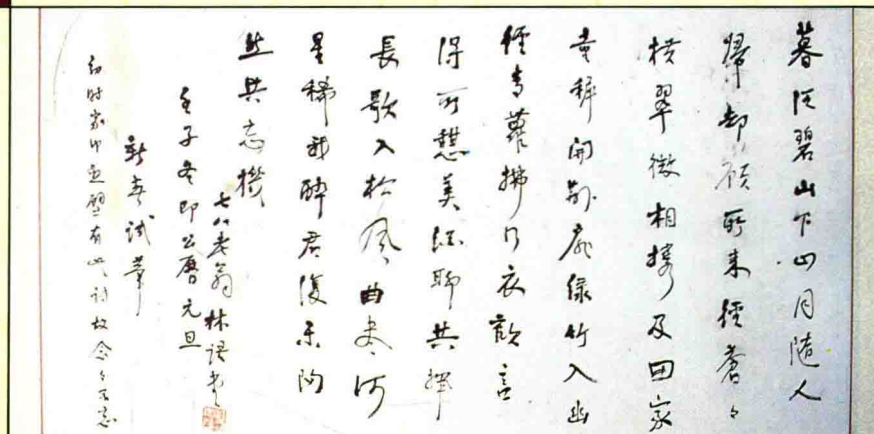 暮從碧山下山月隨人
歸却顧所来徑蒼々
橫翠微相攜及田家
童稚開荊扉綠竹入幽
徑青蘿拂行衣歡言
得所憩美酒聊共揮
長歌入松風曲盡河
星稀我醉君復樂陶
然共忘機
七八老翁林語堂
壬子冬即公曆元旦
新春試筆
幼时家中照壁有此詩故念々不忘